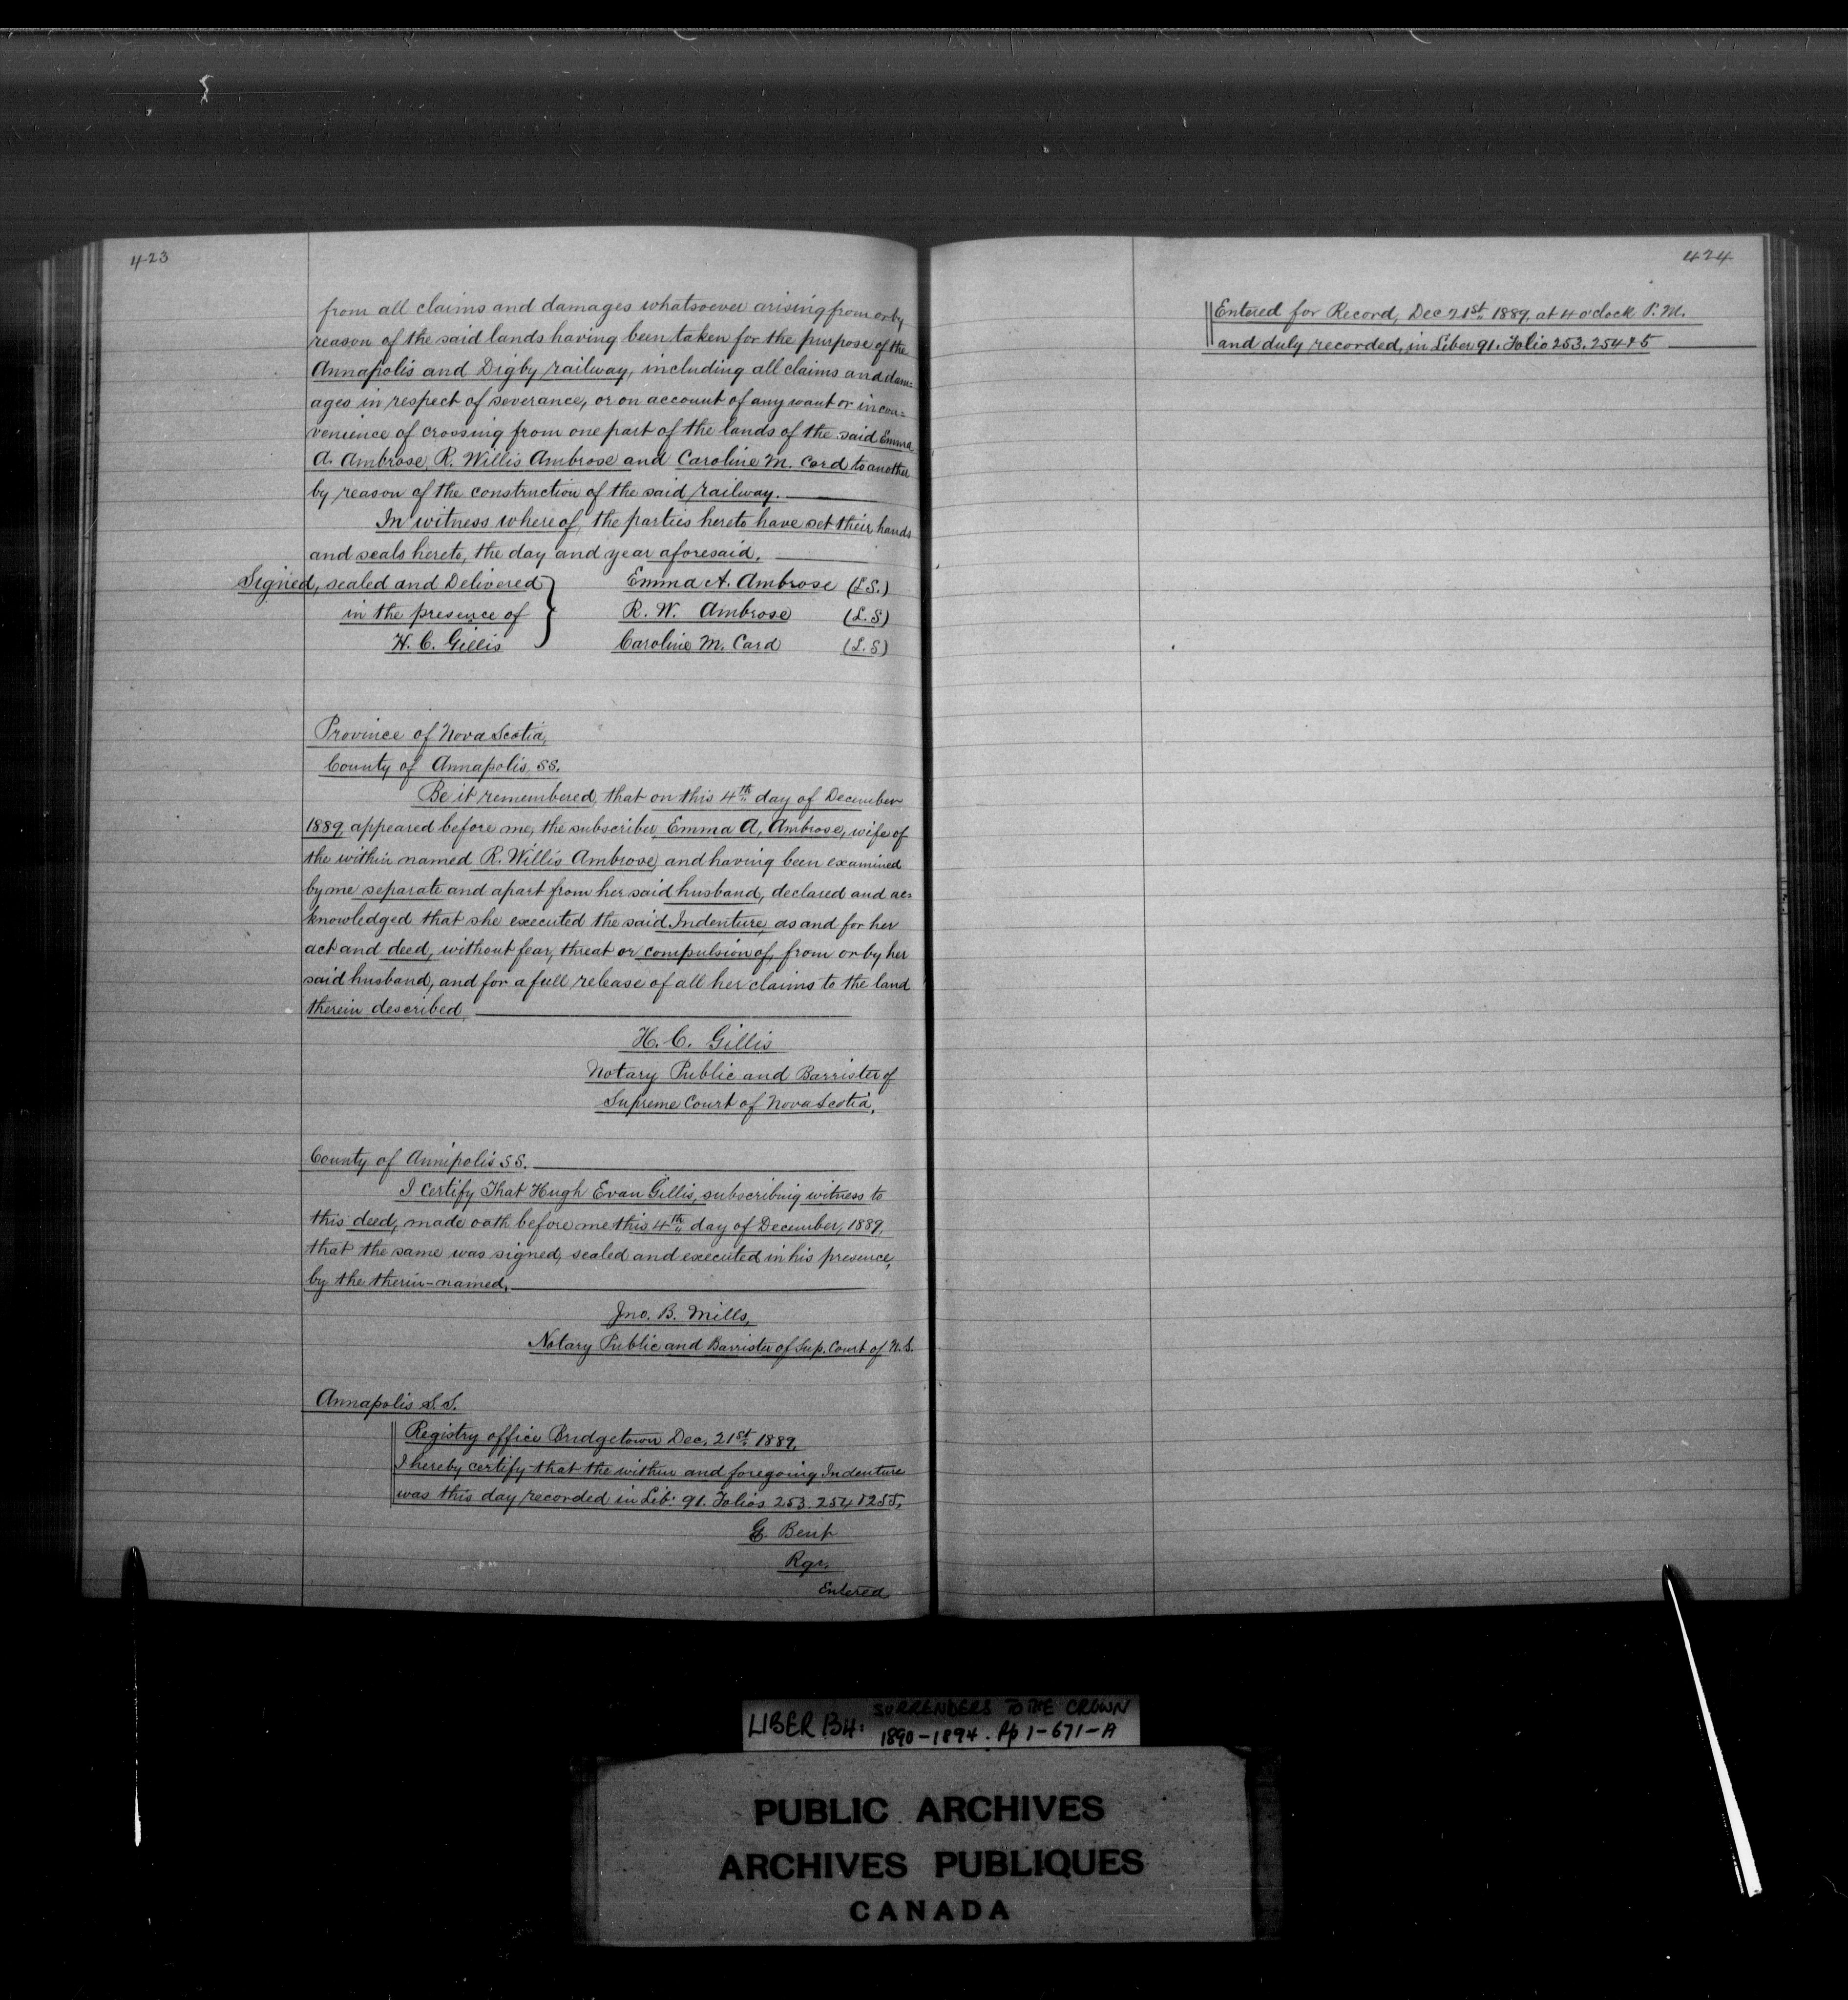 423
from all claims and damages whatsoever arising from or by
reason of the said lands having been taken for the purpose of the
Annapolis and Digby railway, including all claims and dam=
ages in respect of severance, or on account of any want or incon=
venience of crossing from one part of the lands of the said Emma
A. Ambrose, R. Willis Ambrose and Caroline M. Card to another
by reason of the construction of the said railway.
In witness whereof, the parties hereto have set their hands
and seals hereto, the day and year aforesaid.
Signed, sealed and Delivered } Emma A. Ambrose (L.S.)
in the presence of R. W. Ambrose (L.S)
H. C. Gillis Caroline M. Card (L.S)
Province of Nova Scotia,
County of Annapolis, SS.
Be it remembered, that on this 4th day of December
1889, appeared before me, the subscriber, Emma A. Ambrose, wife of
the within named R. Willis Ambrose, and having been examined
by me separate and apart from her said husband, declared and ac=
knowledged that she executed the said Indenture, as and for her
act and deed, without fear, threat or compulsion of, from or by her
said husband, and for a full release of all her claims to the land
therein described
H. C. Gillis
Notary Public and Barrister of
Supreme Court of Nova Scotia,
County of Annipolis SS.
I certify That Hugh Evan Gillis, subscribing witness to
this deed, made oath before me this 4th day of December, 1889,
that the same was signed, sealed and executed in his presence,
by the therin-named,
Jno. B. Mills,
Notary Public and Barrister of Sup. Court of N.S.
Annapolis S.S.
Registry office Bridgetown Dec. 21st 1889.
I hereby certify that the within and foregoing Indenture
was this day recorded in Lib: 91. Folios 253. 254 & 255,
G. Bent
Rgr.
Entered
424
Entered for Record, Dec 21st 1889, at 4 o'clock P.M.
and duly recorded, in Liber 91. Folio 253. 254 & 5
LIBER B4: SURRENDERS TO THE CROWN
1890-1894. Pp 1-671-A
PUBLIC ARCHIVES
ARCHIVES PUBLIQUES
CANADA